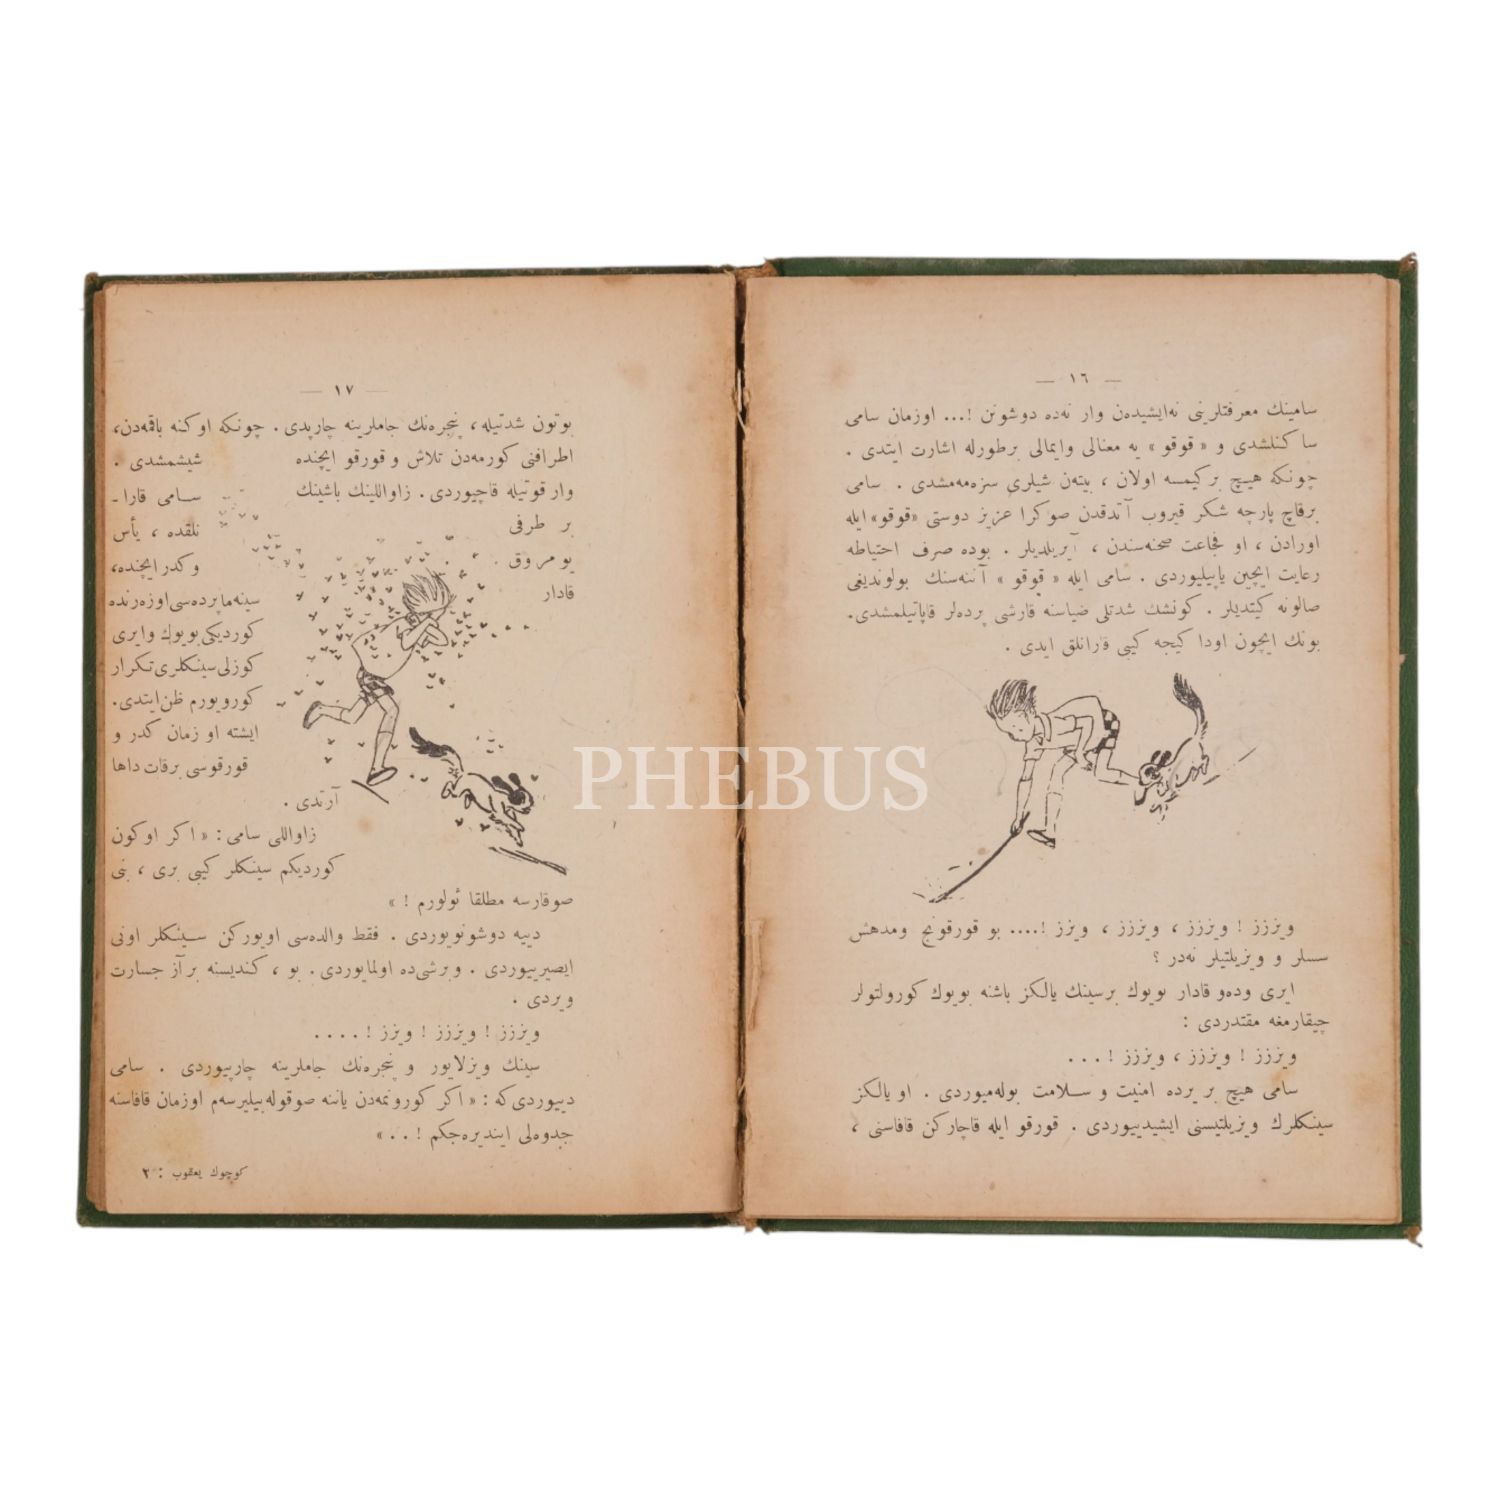 — ١٦ —
سامينك معرفتلرينى نه‌ايشيده‌ن وار نه‌ده دوشونن !... اوزمان سامى
ساكنلشدى و « قوقو » يه معنالى وايمالى برطورله اشارت ايتدى .
چونكه هيچ بركيمسه اولان ، بيته‌ن شيلرى سزه‌مه‌مشدى . سامى
برقاچ پارچه شكر قيروب آتدقدن صوكرا عزيز دوستى «قوقو» ايله
اورادن ، او فجاعت صحنه‌سندن ، آيريلديلر . بوده صرف احتياطه
رعايت ايچين ياپيليوردى . سامى ايله « قوقو » آننه‌سنك بولونديغى
صالونه كيتديلر . كونشك شدتلى ضياسنه قارشى پرده‌لر قاپاتيلمشدى.
بونك ايچون اودا كيجه كيبى قارانلق ايدى .
ويززز ! ويززز ، ويززز ، ويزز !.... بو قورقونج ومدهش
سسلر و ويزيلتيلر نه‌در ؟
ايرى وده‌و قادار بويوك برسينك يالكز باشنه بويوك كورولتولر
چيقارمغه مقتدردى :
ويززز ! ويززز ، ويززز !...
سامى هيچ بر يرده امنيت و سلامت بوله‌ميوردى . او يالكز
سينكلرك ويزيلتيسنى ايشيدييوردى . قورقو ايله قاچاركن قافاسنى ،
— ١٧ —
بوتون شدتيله ، پنجره‌نك جاملرينه چارپدى . چونكه اوكنه باقمه‌دن،
اطرافنى كورمه‌دن تلاش و قورقو ايچنده
وار قوتيله قاچيوردى . زاواللينك باشينك
بر طرفى
يومروق
قادار
شيشمشدى .
سامى قارا-
نلقده ، يأس
وكدر ايچنده،
سينه‌ما پرده‌سى اوزه‌رنده
كورديكى بويوك وايرى
كوزلى سينكلرى تكرار
كورويورم ظن ايتدى.
ايشته او زمان كدر و
قورقوسى برقات داها
آرتدى .
زاواللى سامى : « اكر اوكون
كورديكم سينكلر كيبى برى ، بنى
صوقارسه مطلقا ئولورم ! »
دييه دوشونويوردى . فقط والده‌سى اويوركن سينكلر اونى
ايصيريیوردى . وبرشى‌ده اولمايوردى . بو ، كنديسنه برآز جسارت
ويردى .
ويززز ! ويززز ! ويزز !....
سينك ويزلايور و پنجره‌نك جاملرينه چارپيوردى . سامى
دييوردى‌كه : « اكر كورونمه‌دن ياننه صوقوله‌بيليرسه‌م اوزمان قافاسنه
جدوه‌لى اينديره‌جكم !.. »
كوچوك يعقوب : ٢
PHEBUS